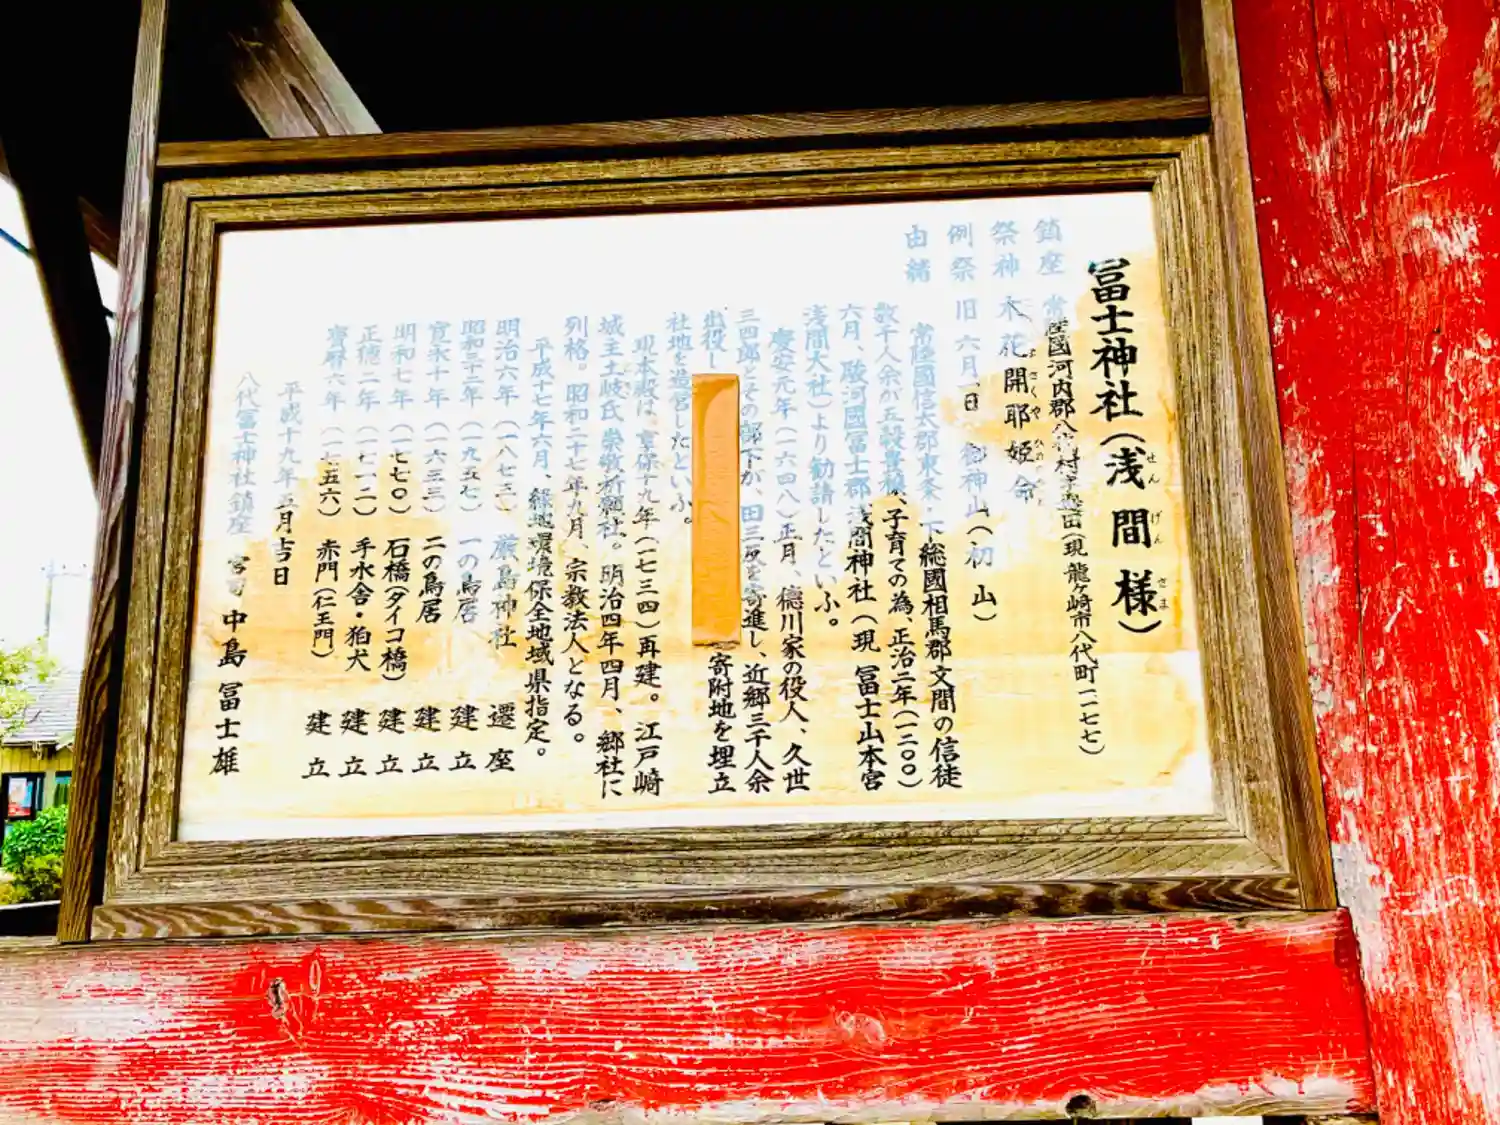 冨士神社(浅間様)
せんげんさま
鎮座 常陸國河内郡八代村字奥田(現 龍ヶ崎市八代町一一七七)
祭神 木花開耶姫命
例祭 旧六月一日 御神山(初山)
由緒
常陸國信太郡東条・下総國相馬郡文間の信徒
数千人余が五穀豊穣、子育ての為、正治二年(一二〇〇)
六月、駿河國冨士郡浅間神社(現 冨士山本宮
浅間大社)より勧請したといふ。
慶安元年(一六四八)正月、德川家の役人、久世
三四郎とその部下が、田三反を寄進し、近郷三千人余
出役し 寄附地を埋立
社地を造営したといふ。
現本殿は、享保十九年(一七三四)再建。江戸崎
城主土岐氏崇敬祈願社。明治四年四月、郷社に
列格。昭和二十七年九月、宗教法人となる。
平成十七年六月、緑地環境保全地域県指定。
明治六年(一八七三) 厳島神社 遷座
昭和三十二年(一九五七) 一の鳥居 建立
寛永十年(一六三三) 二の鳥居 建立
明和七年(一七七〇) 石橋(タイコ橋) 建立
正徳二年(一七一二) 手水舎・狛犬 建立
寳暦六年(一七五六) 赤門(仁王門) 建立
平成十九年五月吉日
八代冨士神社鎮座 宮司 中島冨士雄